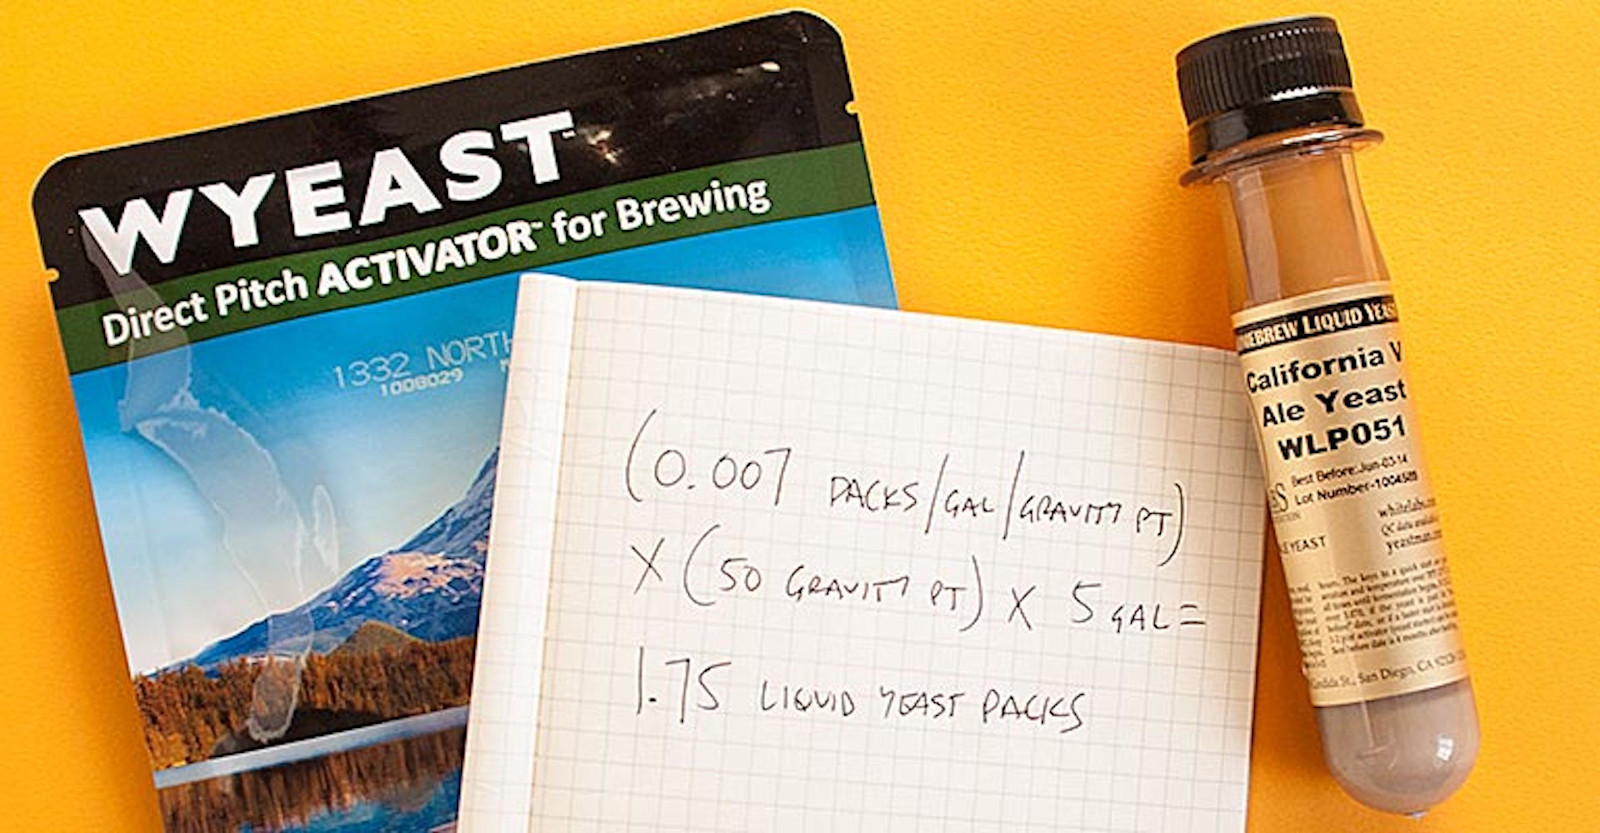 WYEAST
Direct Pitch ACTIVATOR™ for Brewing
1332 NORTH
1008029
(0.007 PACKS/GAL/GRAVITY PT)
X (50 GRAVITY PT) X 5 GAL =
1.75 LIQUID YEAST PACKS
HOMEBREW LIQUID YEAST
California V
Ale Yeast
WLP051
Best Before: Jun-03-14
Lot Number-1004589
whitelabs.co
QC data available
yeastman.com
YEAST
San Diego, CA